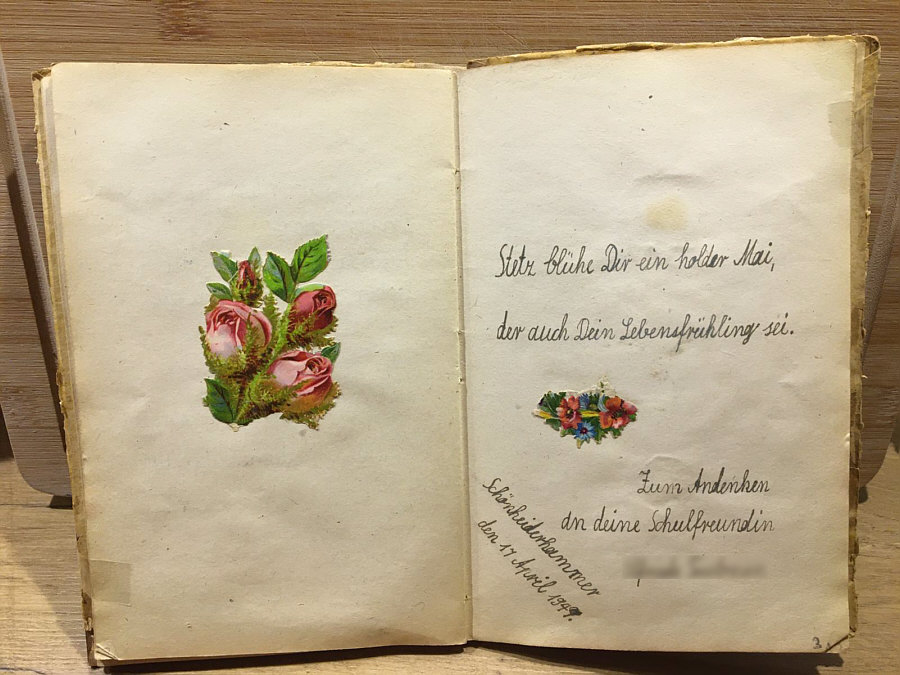 Stetz blühe Dir ein holder Mai,
der auch Dein Lebensfrühling sei.
Zum Andenken
an deine Schulfreundin
Schönheiderhammer
den 17 April 1949.
3.